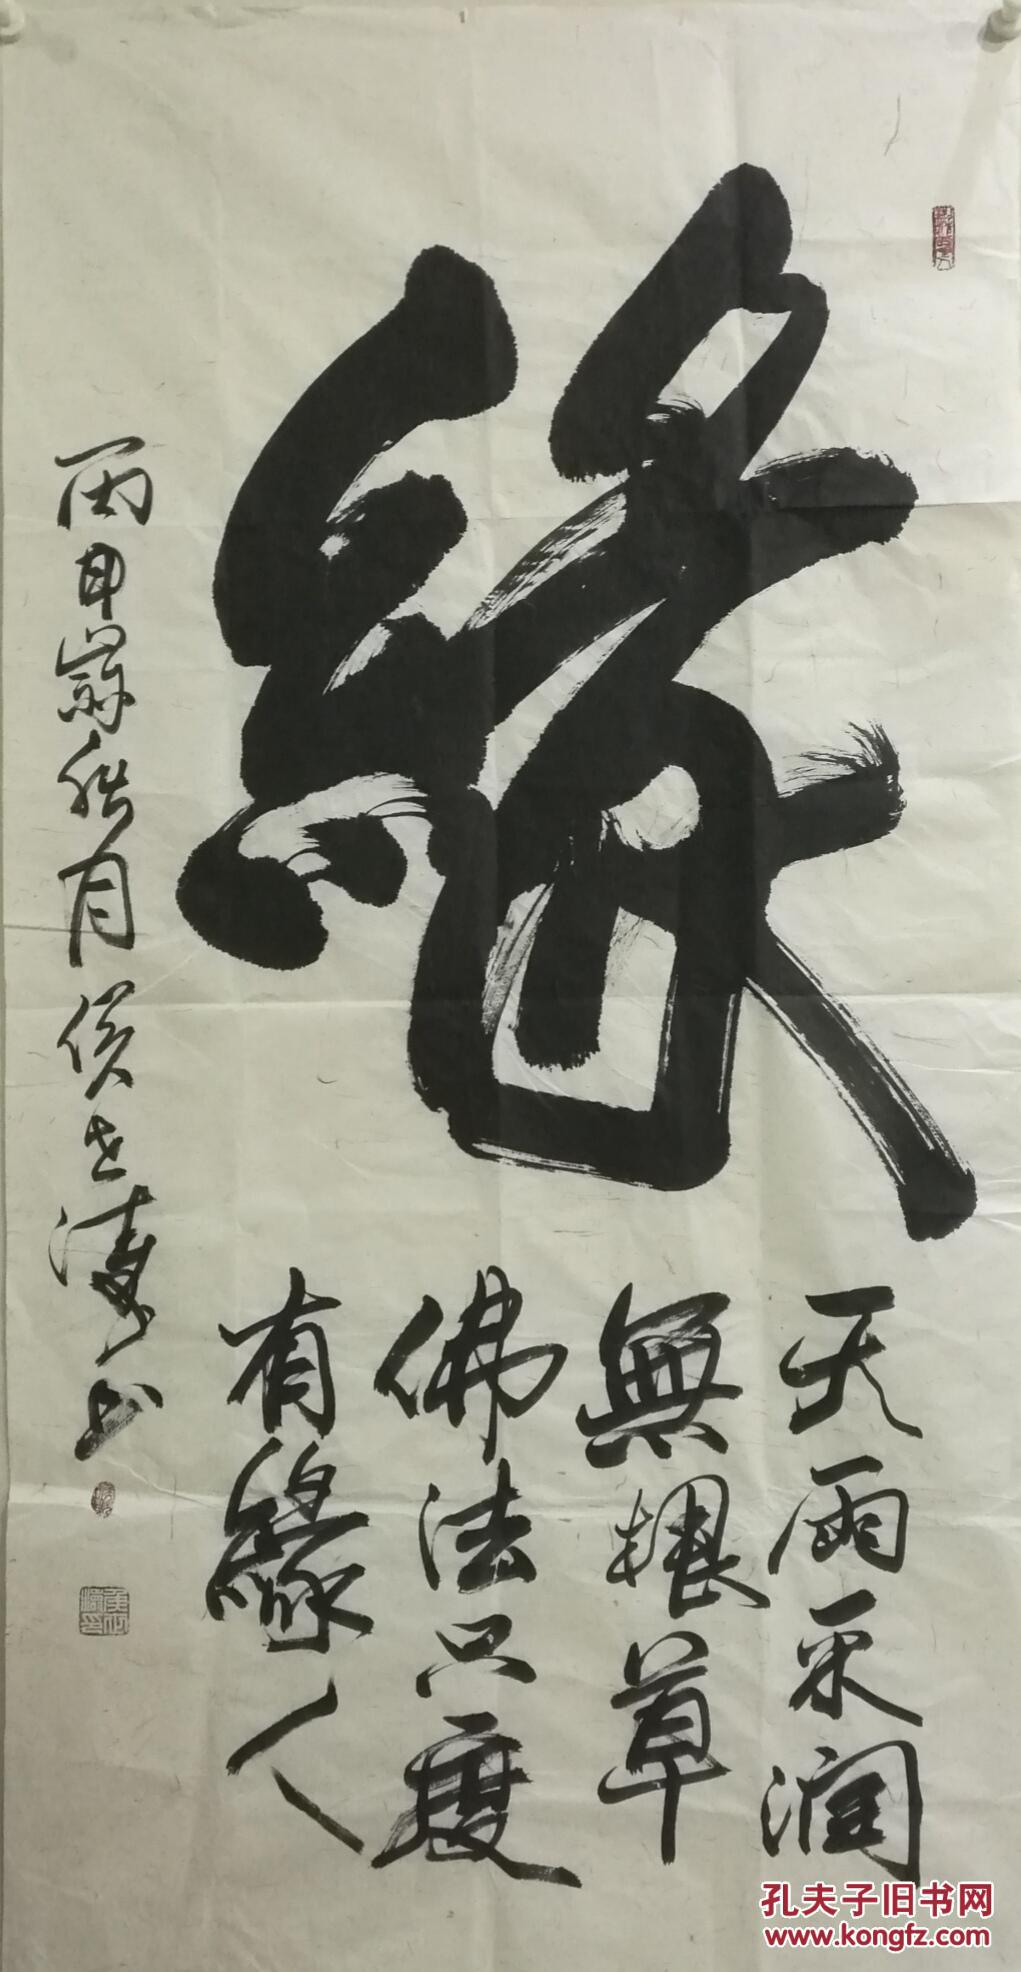 緣
天雨润
無根草
佛法只度
有緣人
丙申歲秋月侯書
孔夫子旧书网
www.kongfz.com